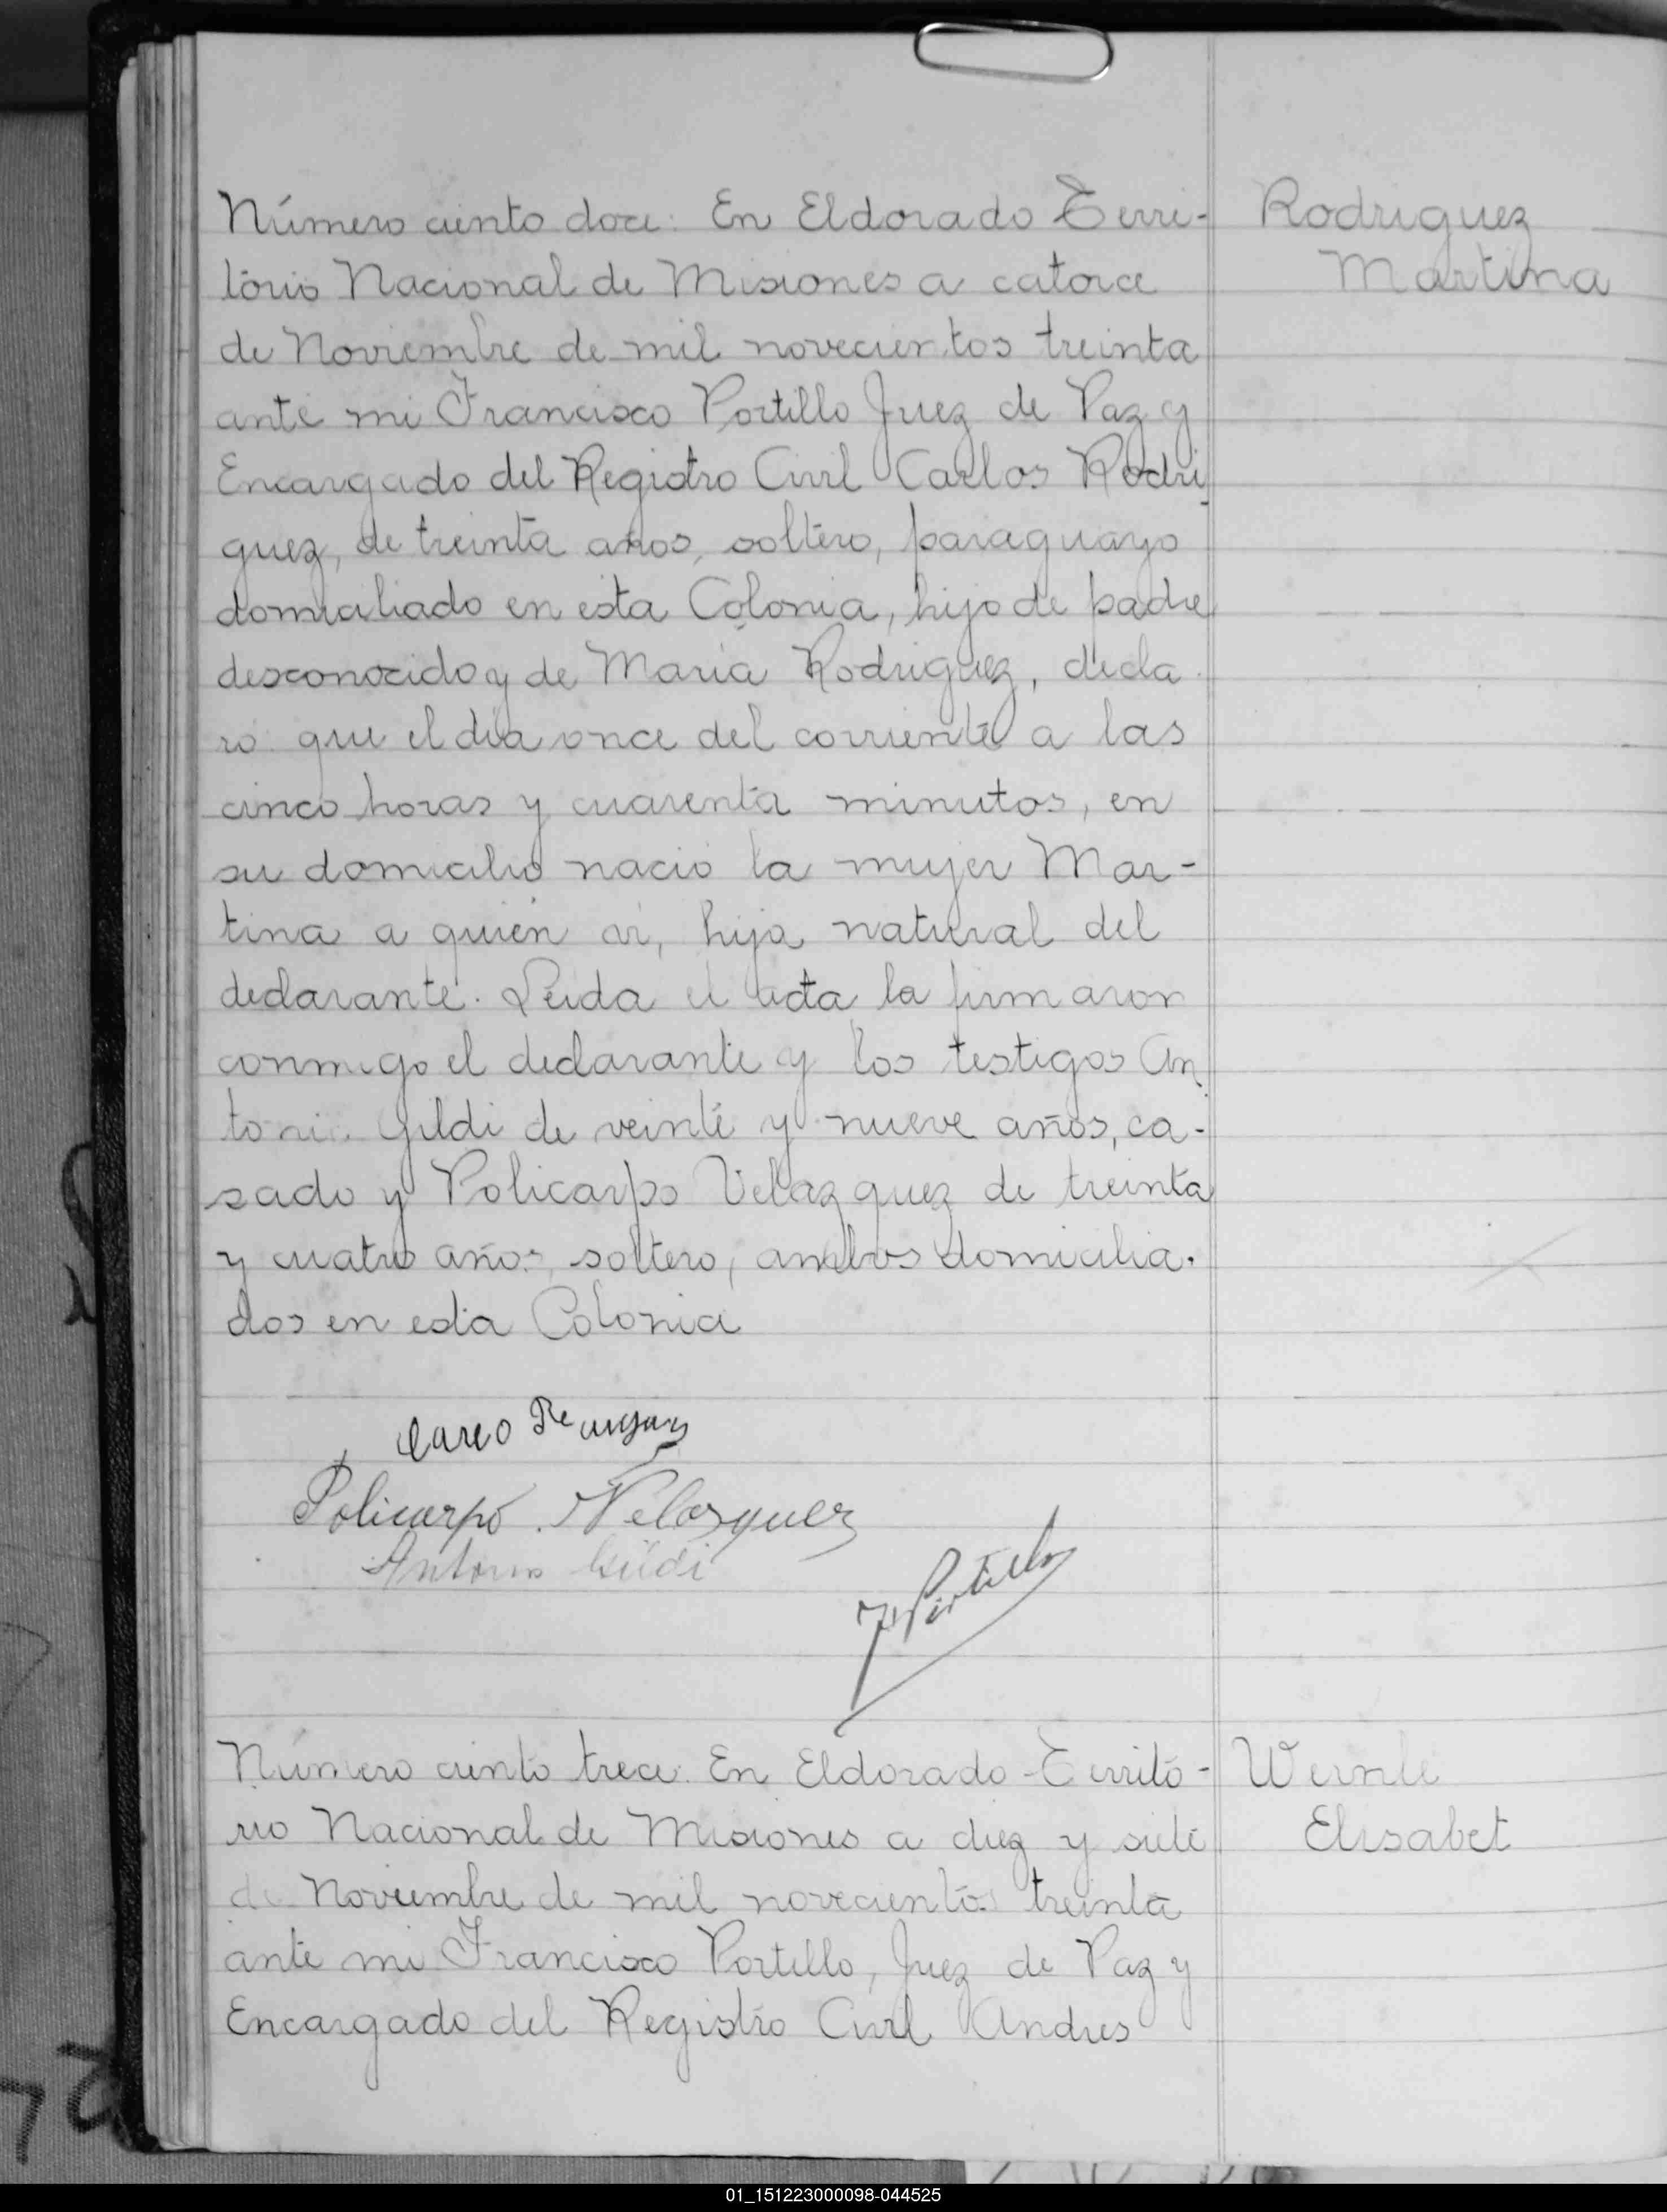 Número ciento doce: En Eldorado Terri-
torio Nacional de Misiones a catorce
de Noviembre de mil novecientos treinta
ante mi Francisco Portillo Juez de Paz y
Encargado del Registro Civil Carlos Rodri-
guez, de treinta años, soltero, paraguayo
domiciliado en esta Colonia, hijo de padre
desconocido y de Maria Rodriguez, decla
ró que el dia once del corriente a las
cinco horas y cuarenta minutos, en
su domicilio nació la mujer Mar-
tina a quien vi, hija natural del
declarante. Leida el acta la firmaron
conmigo el declarante y los testigos An
tonio Gildi de veinte y nueve años, ca-
sado y Policarpo Velazquez de treinta
y cuatro años, soltero, ambos domicilia-
dos en esta Colonia
Rodriguez
Martina
Policarpo Velasquez
Antonio Gildi
F Portillo
Número ciento trece. En Eldorado Territo-
rio Nacional de Misiones a diez y siete
de Noviembre de mil novecientos treinta
ante mi Francisco Portillo, Juez de Paz y
Encargado del Registro Civil Andres
Wernle
Elisabet
01_151223000098-044525